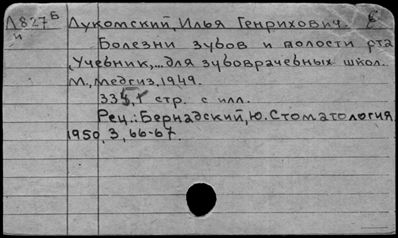 Л827Б Лукомский, Илья Генрихович.
и Болезни зубов и полости рта
,Учебник,...для зубоврачебных школ.
М., Медгиз, 1949.
стр. с илл.
Рец.: Бернадский, Ю. Стоматология
1950, 3, 66-67.